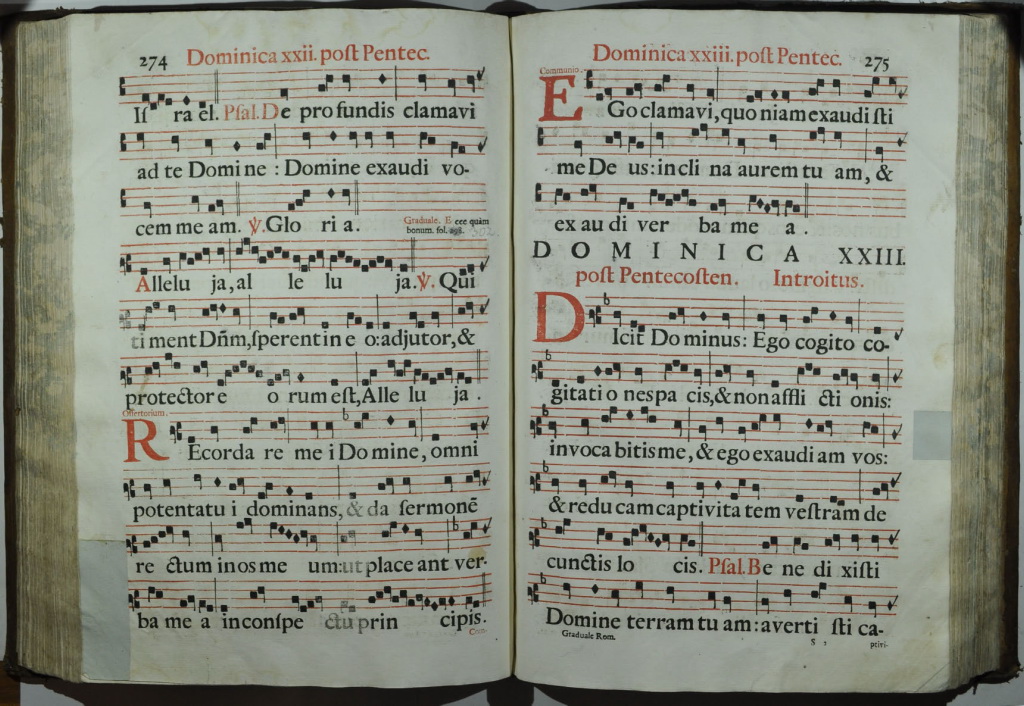 274 Dominica xxii. poſt Pentec.
Iſ ra el. Pſal. De profundis clamavi
ad te Domine : Domine exaudi vo-
cem me am. ℣. Glo ri a.
Graduale. E cce quàm
bonum. fol.
Allelu ja, al le lu ja. ℣. Qui
timent Dñm, ſperent in e o: adjutor, &
protector e o rum eſt, Alle lu ja.
Offertorium.
REcorda re me i Domine, omni
potentatu i dominans, & da ſermonē
re ctum in os me um: ut place ant ver-
ba me a in conſpe ctu prin cipis.
Com-
Dominica xxiii. poſt Pentec. 275
Communio.
EGo clamavi, quo niam exaudi ſti
me De us: incli na aurem tu am, &
ex au di ver ba me a.
DOMINICA XXIII.
poſt Pentecoſten. Introitus.
DIcit Dominus: Ego cogito co-
gitati o nes pa cis, & non affli cti onis:
invoca bitis me, & ego exaudi am vos:
& redu cam captivita tem veſtram de
cunctis lo cis. Pſal. Be ne di xiſti
Domine terram tu am: averti ſti ca-
Graduale Rom. S 2 ptivi-